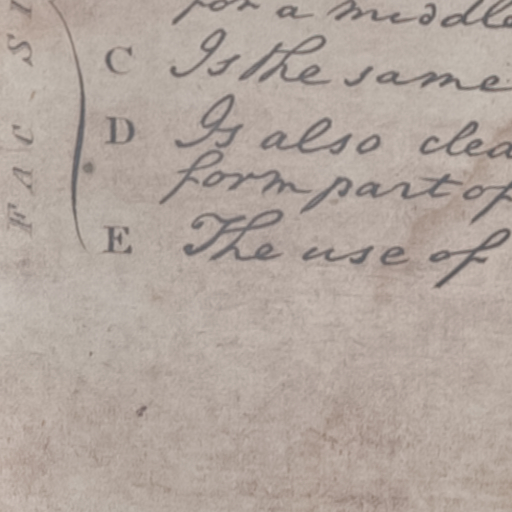 for a middle
C Is the same
D Is also clea
form part of
E The use of
FAC-SI